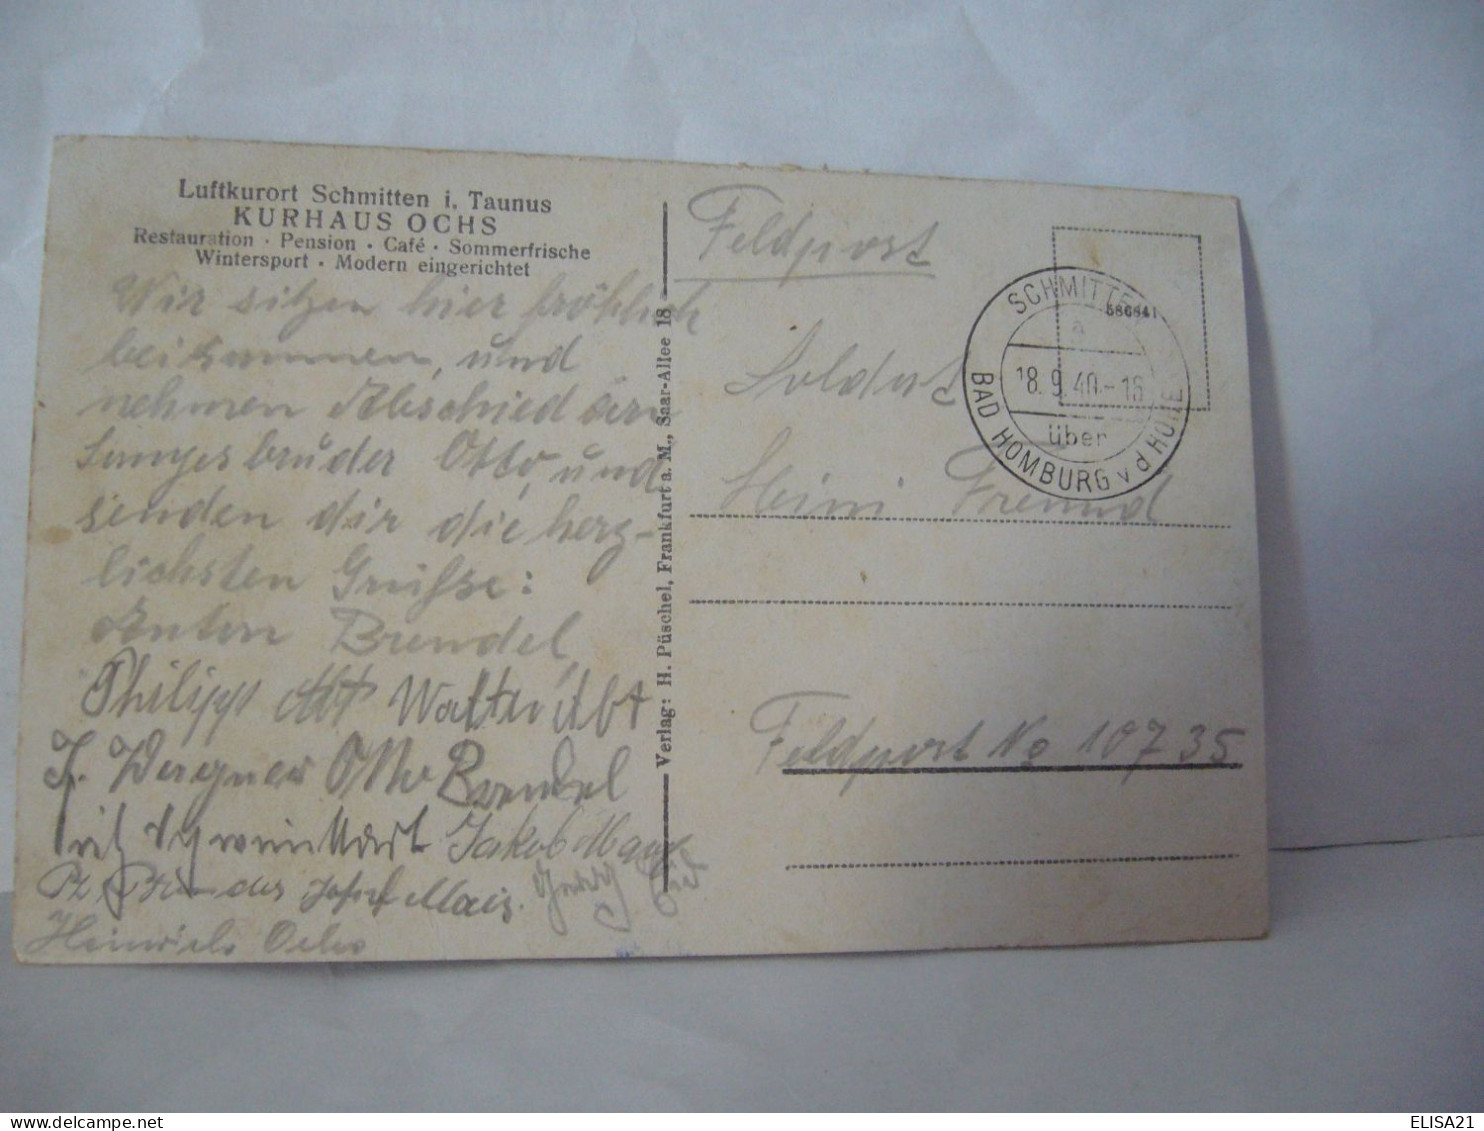 Luftkurort Schmitten i. Taunus
KURHAUS OCHS
Restauration · Pension · Café · Sommerfrische
Wintersport · Modern eingerichtet
Wir sitzen hier fröhlich
beisammen, und
nehmen Abschied
Sangesbruder Otto, und
senden dir die herz-
lichsten Grüsse:
Anton Brendel,
Philipp Abt Walter Abt
Otto Brendel
Jakob
Josef Mais.
Heinrich Ochs
Verlag: H. Püschel, Frankfurt a. M., Saar-Allee 18
Feldpost
586841
SCHMITTEN
a
18.9.40.-16
über
BAD HOMBURG v d HÖHE
Soldat
Heini Freund
Feldpost No 10735
ELISA21